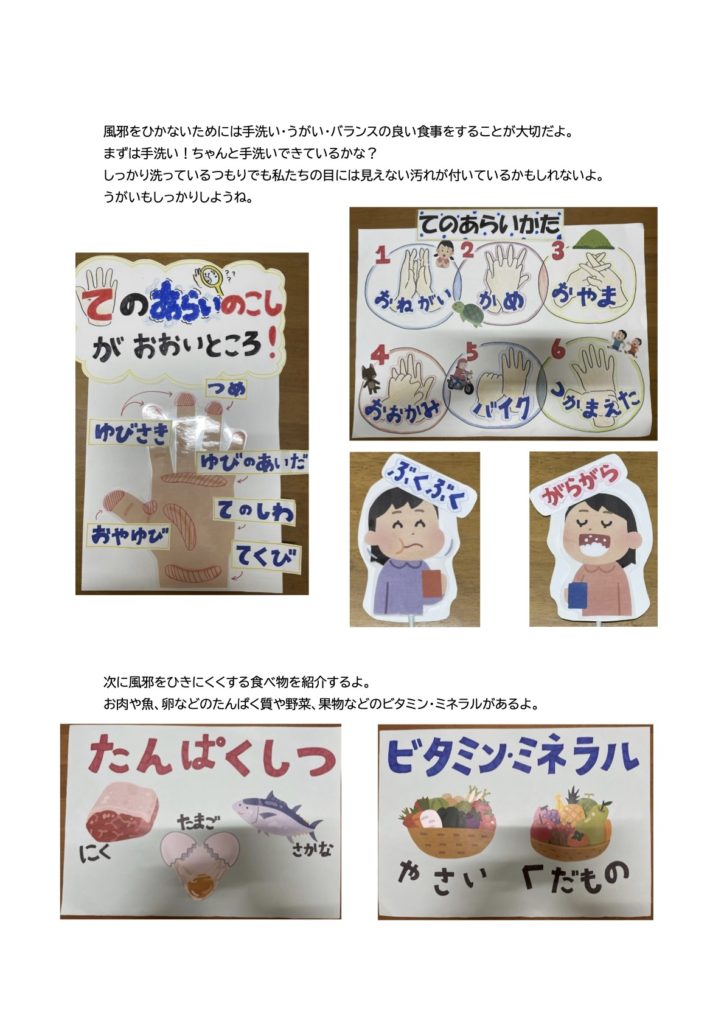 風邪をひかないためには手洗い・うがい・バランスの良い食事をすることが大切だよ。
まずは手洗い！ちゃんと手洗いできているかな？
しっかり洗っているつもりでも私たちの目には見えない汚れが付いているかもしれないよ。
うがいもしっかりしようね。
てのあらいのこし
がおおいところ！
つめ
ゆびさき
ゆびのあいだ
てのしわ
おやゆび
てくび
てのあらいかた
1 おねがい
2 かめ
3 おやま
4 おおかみ
5 バイク
6 つかまえた
ぶくぶく
がらがら
次に風邪をひきにくくする食べ物を紹介するよ。
お肉や魚、卵などのたんぱく質や野菜、果物などのビタミン・ミネラルがあるよ。
たんぱくしつ
にく
たまご
さかな
ビタミン・ミネラル
やさい
くだもの